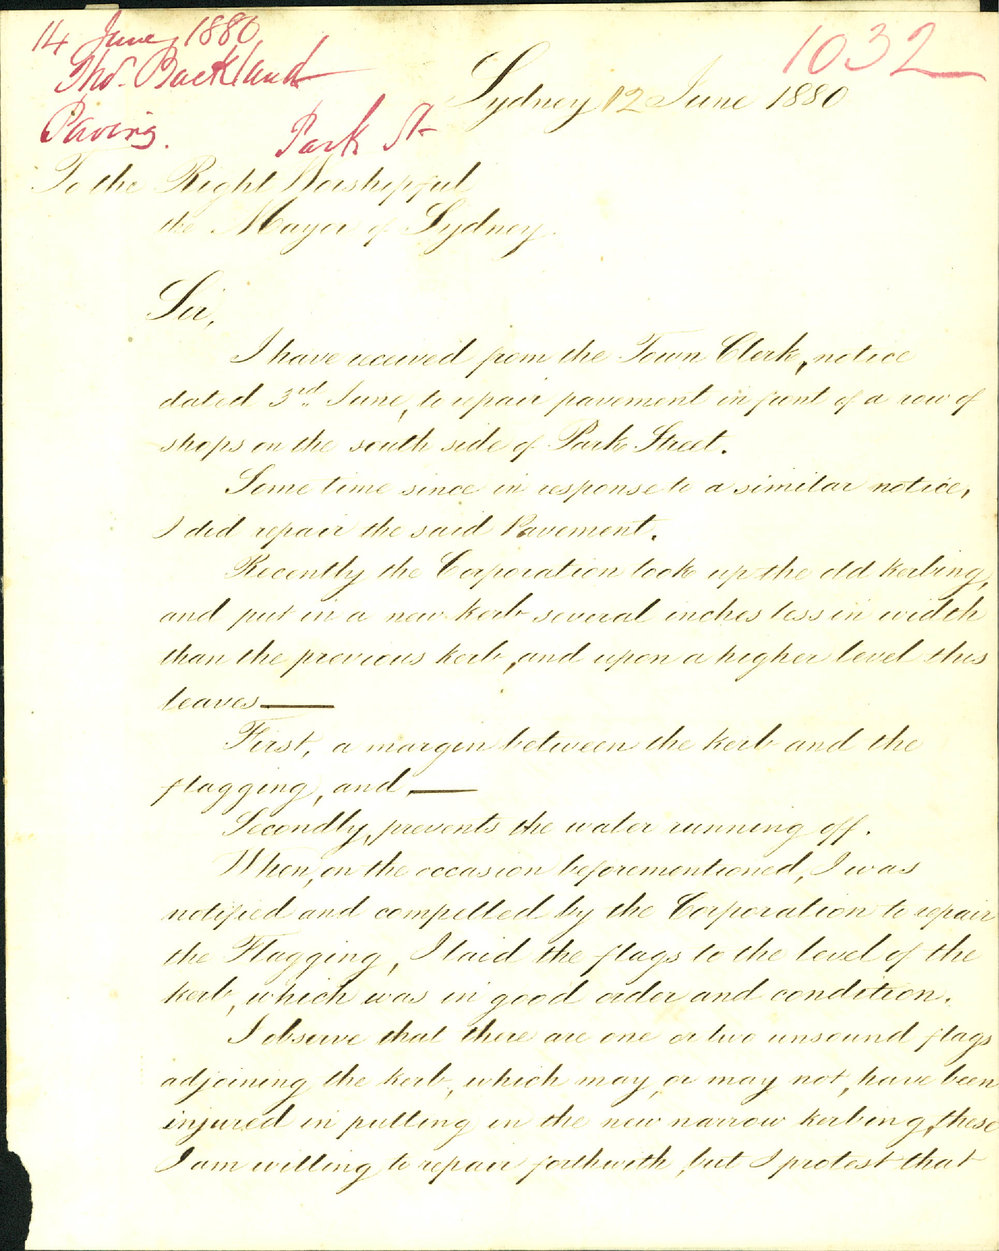 14 June 1880
1032
Thos. Backland
Sydney 12 June 1880
Paving. Park St
To the Right Worshipful
the Mayor of Sydney.
Sir,
I have received from the Town Clerk, notice
dated 3rd June, to repair pavement in front of a row of
shops on the south side of Park Street.
Some time since in response to a similar notice,
I did repair the said Pavement.
Recently the Corporation took up the old kerbing,
and put in a new kerb several inches less in width
than the previous kerb, and upon a higher level this
leaves —
First, a margin between the kerb and the
flagging, and —
Secondly, prevents the water running off.
When, on the occasion beforementioned, I was
notified and compelled by the Corporation to repair
the Flagging, I laid the flags to the level of the
kerb, which was in good order and condition.
I observe that there are one or two unsound flags
adjoining the kerb, which may, or may not, have been
injured in putting in the new narrow kerbing, these
I am willing to repair forthwith, but I protest that